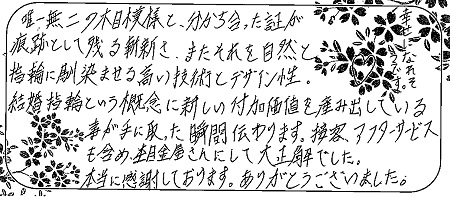 唯一無二の木目模様と、分かち合った証が
痕跡として残る斬新さ、またそれを自然と
指輪に馴染ませる高い技術とデザイン性。
結婚指輪という概念に新しい付加価値を産み出している
事が手に取った瞬間伝わります。接客、アフターサービス
も含め、杢目金屋さんにして大正解でした。
本当に感謝しております。ありがとうございました。
幸せになれそ
うです。